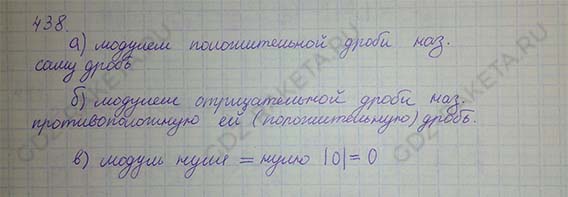 438.
а) модулем положительной дроби наз.
саму дробь
б) модулем отрицательной дроби наз.
противоположную ей (порожительную) дробь.
в) модуль нуля = нулю |0| = 0